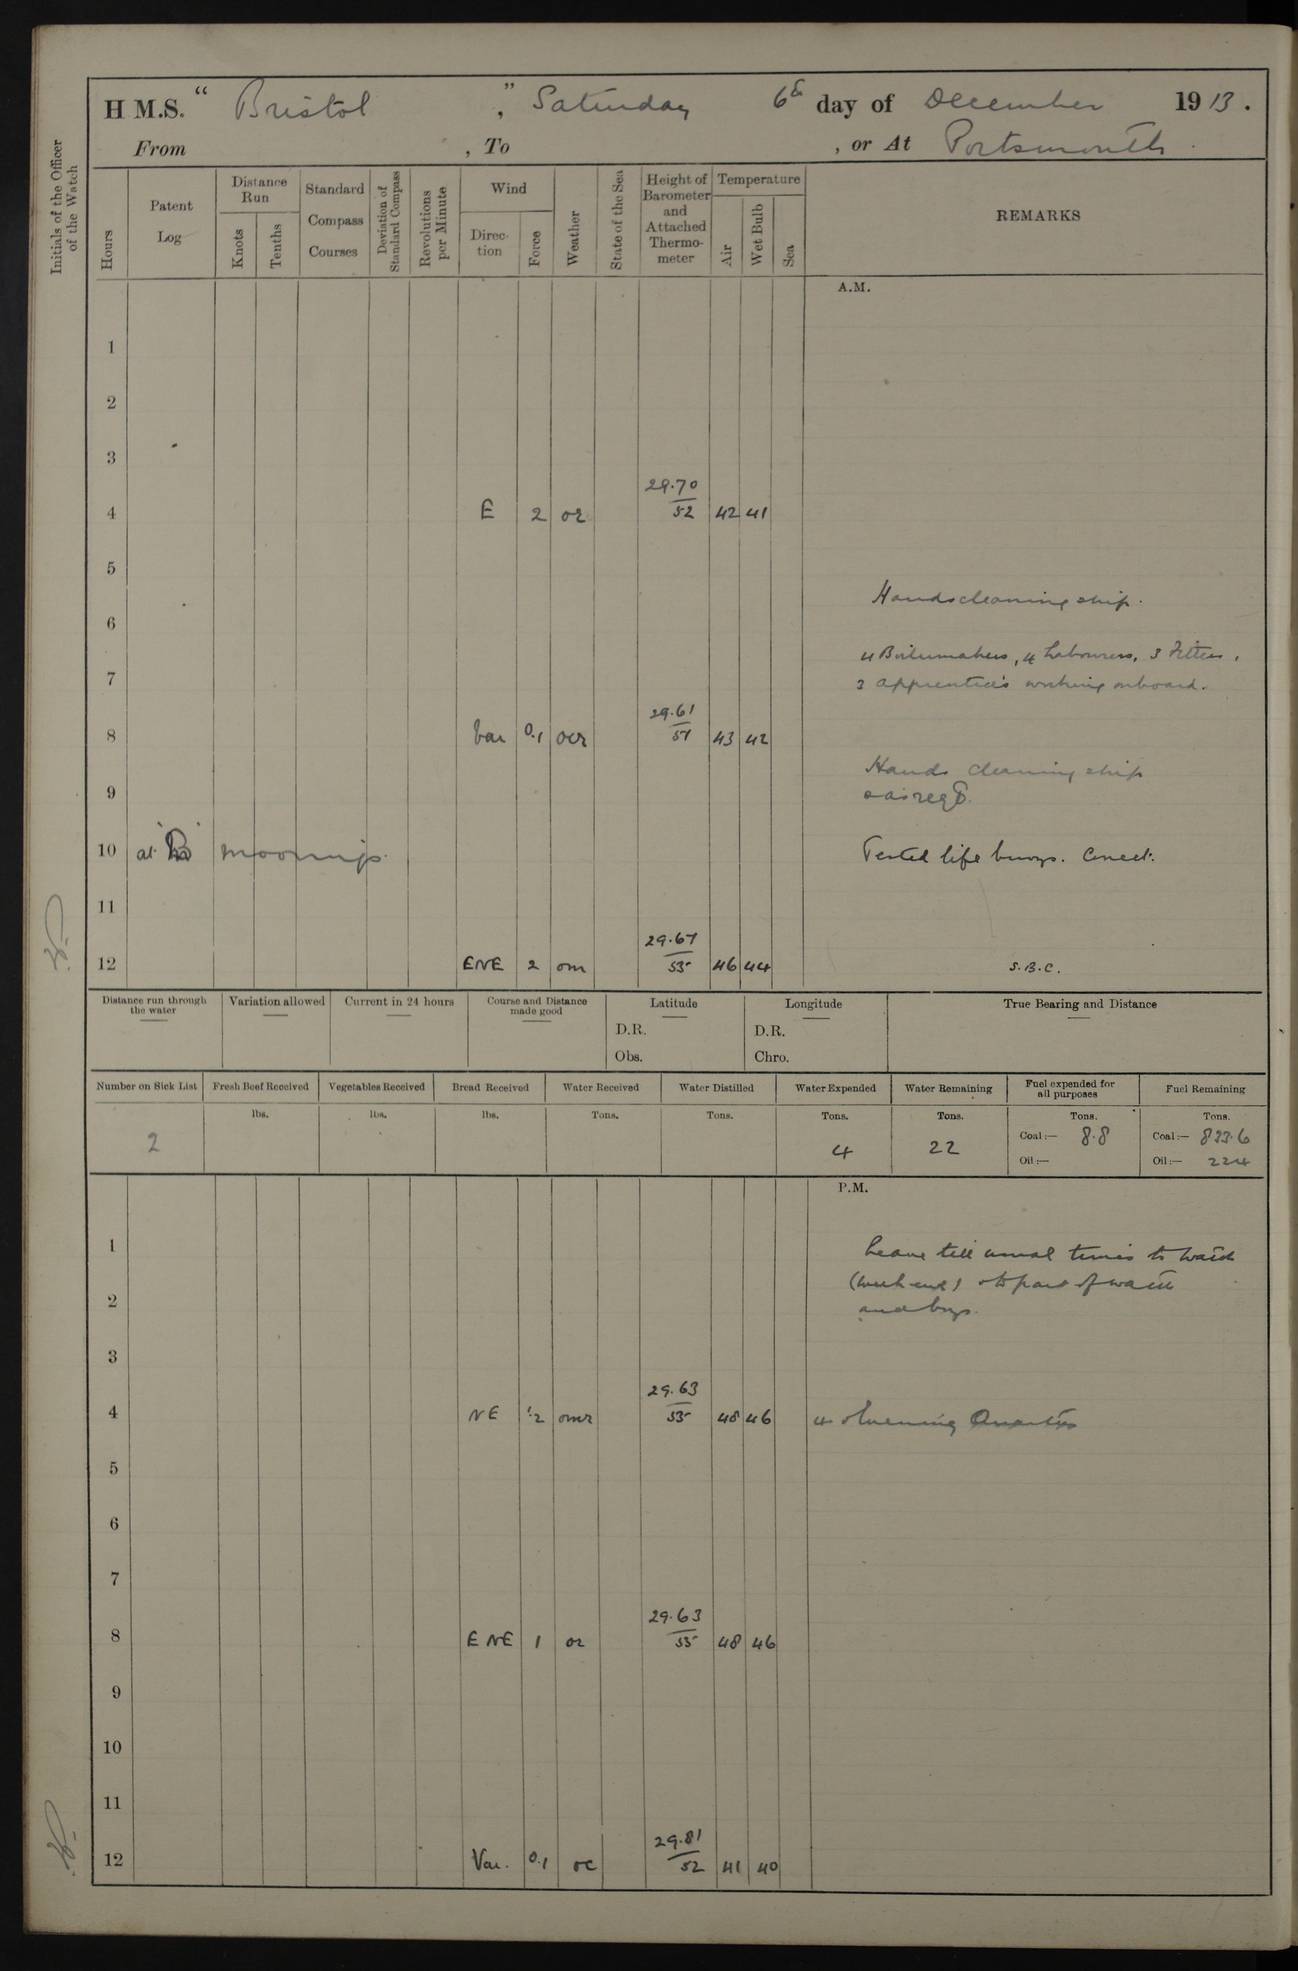 H M.S. “ Bristol ,” Saturday 6th day of December 1913.
From , To , or At Portsmouth.
Initials of the Officer of the Watch
Hours
Patent Log
Distance Run
Knots
Tenths
Standard Compass Courses
Deviation of Standard Compass
Revolutions per Minute
Wind
Direc-tion
Force
Weather
State of the Sea
Height of Barometer and Attached Thermo-meter
Temperature
Air
Wet Bulb
Sea
REMARKS
A.M.
1
2
3
29.70
4 E 2 or 52 42 41
5
Hands cleaning ship.
6
4 Boilermakers, 4 Labourers, 3 Fitters,
7 3 apprentices working onboard.
29.61
8 Var 0.1 ocr 51 43 42
Hands cleaning ship
9 & as reqd.
10 at moorings. Tested life buoys. Correct.
11
29.67
12 ENE 2 om 53 46 44 S.B.C.
Distance run through the water
Variation allowed
Current in 24 hours
Course and Distance made good
Latitude
D.R.
Obs.
Longitude
D.R.
Chro.
True Bearing and Distance
Number on Sick List Fresh Beef Received Vegetables Received Bread Received Water Received Water Distilled Water Expended Water Remaining Fuel expended for all purposes Fuel Remaining
lbs. lbs. lbs. Tons. Tons. Tons. Tons. Tons. Tons.
2 4 22
Coal:— 8.8 Coal:— 823.6
Oil:— Oil:— 224
P.M.
1 Leave till usual times to watch
(week end) & to part of watch
2 and boys.
3
29.63
4 NE 1.2 omr 53 48 46 4 Evening Quarters
5
6
7
29.63
8 ENE 1 or 55 48 46
9
10
11
29.81
12 Var. 0.1 oc 52 41 40